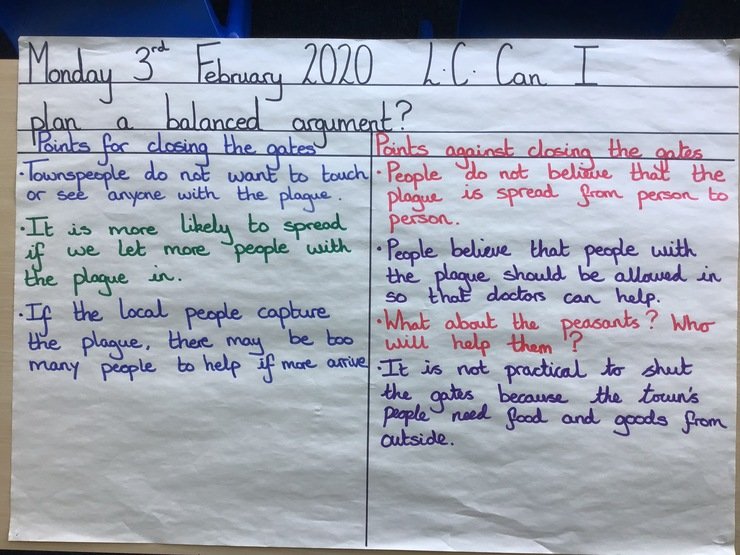 Monday 3rd February 2020 L.C. Can I
plan a balanced argument?
Points for closing the gates
·Townspeople do not want to touch
or see anyone with the plague.
·It is more likely to spread
if we let more people with
the plague in.
·If the local people capture
the plague, there may be too
many people to help if more arrive
Points against closing the gates
·People do not believe that the
plague is spread from person to
person.
·People believe that people with
the plague should be allowed in
so that doctors can help.
·What about the peasants? Who
will help them?
·It is not practical to shut
the gates because the town's
people need food and goods from
outside.